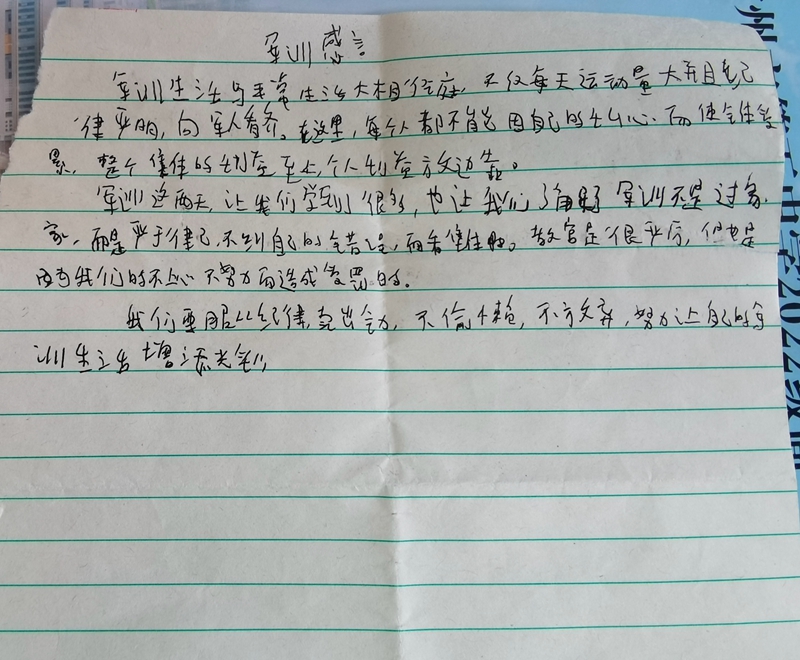 军训感言
军训生活与平常生活大相径庭,不仅每天运动量大并且纪
律严明,向军人看齐。在这里,每个人都不能因自己的私心而使全体受
累,整个集体的利益至上,个人利益放边靠。
军训这两天,让我们学到了很多,也让我们了解了军训不是过家
家,而是严于律己,不因自己的错误,而害集体。教官是很严厉,但也是
因为我们的不上心不努力而造成受罚的。
我们要服从纪律,拿出全力,不偷懒,不放弃,努力让自己的军
训生活增添光彩
州 学2022级